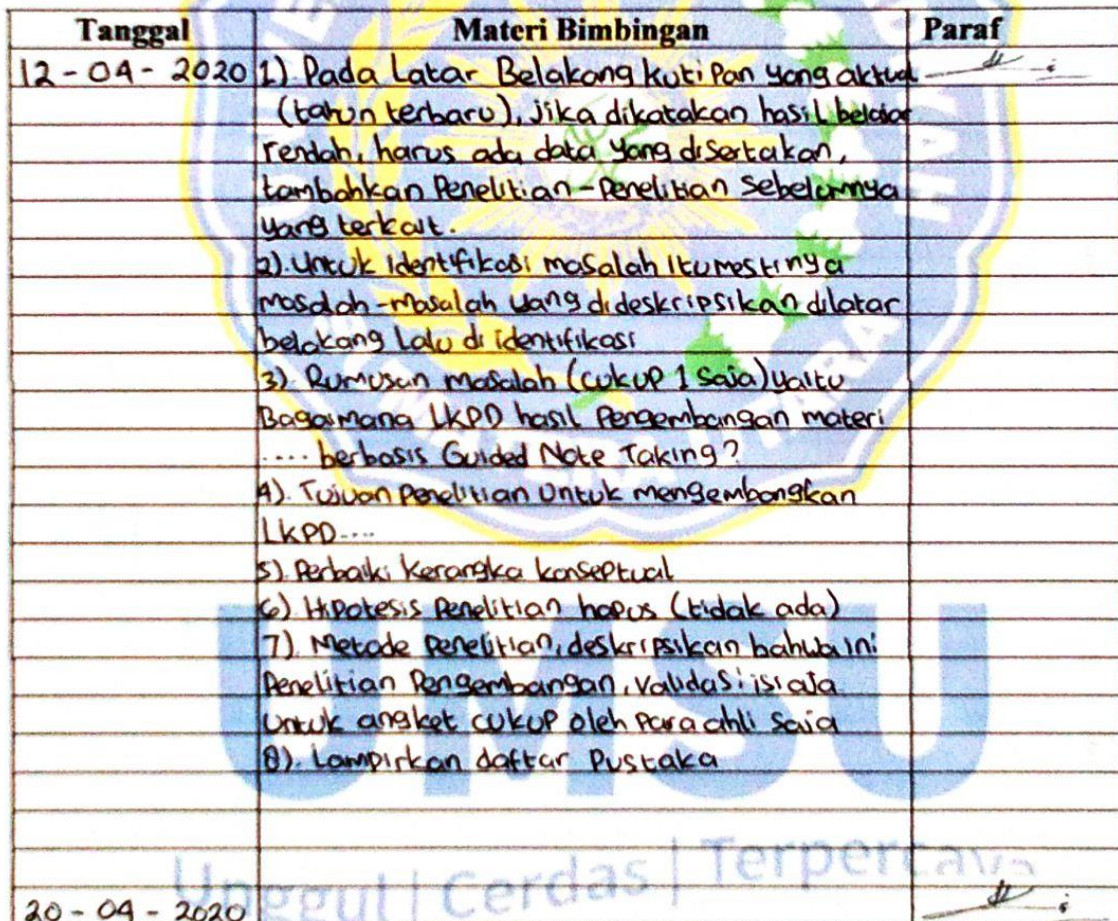 Tanggal Materi Bimbingan Paraf
12 - 04 - 2020 1). Pada Latar Belakang kutipan yang aktual
(tahun terbaru), jika dikatakan hasil belajar
rendah, harus ada data yang disertakan,
tambahkan Penelitian-Penelitian Sebelumnya
yang terkait.
2). Untuk identifikasi masalah itu mestinya
masalah-masalah yang dideskripsikan dilatar
belakang lalu di identifikasi
3). Rumusan masalah (cukup 1 saja) yaitu
Bagaimana LKPD hasil Pengembangan materi
.... berbasis Guided Note Taking?
4). Tujuan Penelitian Untuk mengembangkan
LKPD....
5). Perbaiki Kerangka konseptual
6). Hipotesis Penelitian hapus (tidak ada)
7). Metode Penelitian, deskripsikan bahwa ini
Penelitian Pengembangan, validasi isi aja
Untuk angket cukup oleh Para ahli saja
8). Lampirkan daftar Pustaka
UMSU
Unggul | Cerdas | Terpercaya
20 - 04 - 2020